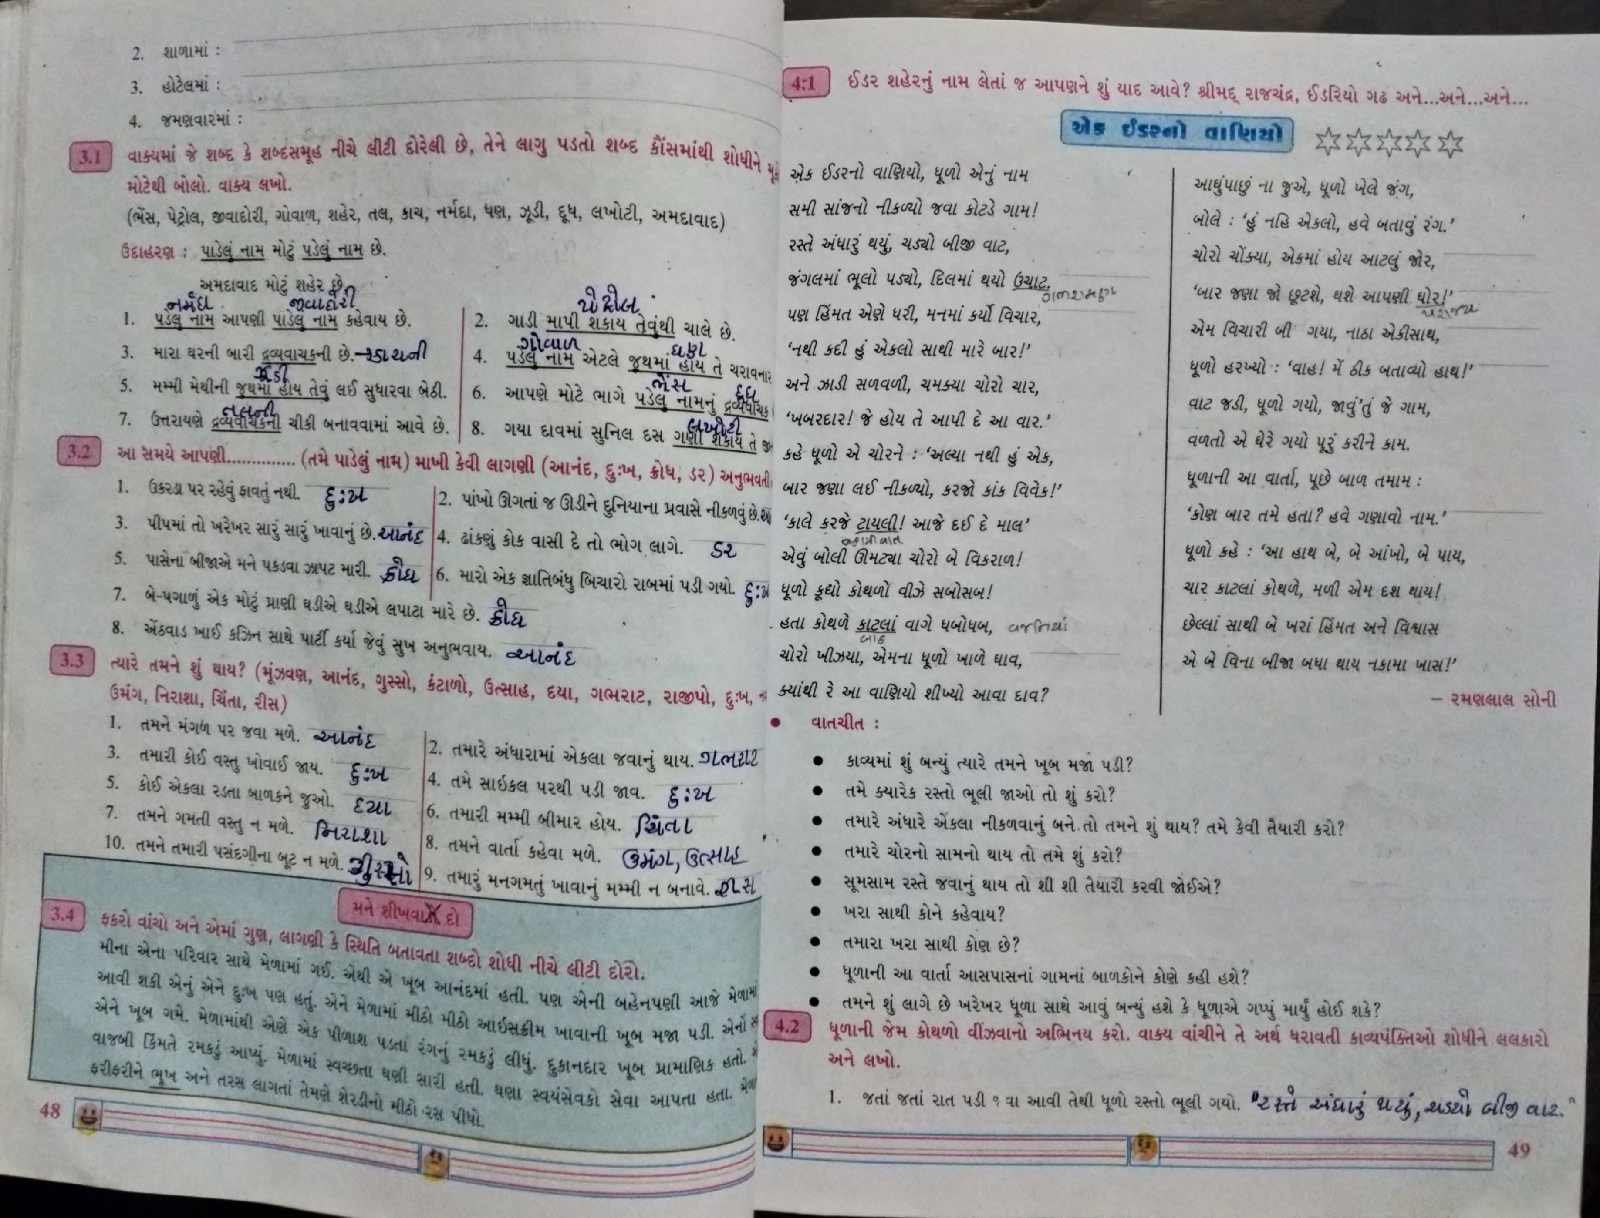 2. શાળામાં :
3. હોટેલમાં :
4. જમણવારમાં :
3.1 વાક્યમાં જે શબ્દ કે શબ્દસમૂહ નીચે લીટી દોરેલી છે, તેને લાગુ પડતો શબ્દ કૌંસમાંથી શોધીને
મોટેથી બોલો. વાક્ય લખો.
(ભેંસ, પેટ્રોલ, જીવાદોરી, ગોવાળ, શહેર, તલ, કાચ, નર્મદા, ધણ, ઝૂડી, દૂધ, લખોટી, અમદાવાદ)
ઉદાહરણ : પાડેલું નામ મોટું પડેલું નામ છે.
અમદાવાદ મોટું શહેર છે.
નર્મદા જીવાદોરી
1. પડેલું નામ આપણી પાડેલું નામ કહેવાય છે.
પેટ્રોલ
2. ગાડી માપી શકાય તેવુંથી ચાલે છે.
3. મારા ઘરની બારી દ્રવ્યવાચકની છે. કાચની
ગોવાળ ધણ
4. પડેલું નામ એટલે જૂથમાં હોય તે ચરાવનાર
ઝૂડી
5. મમ્મી મેથીની જૂથમાં હોય તેવું લઈ સુધારવા બેઠી.
ભેંસ દૂધ
6. આપણે મોટે ભાગે પડેલું નામનું દ્રવ્યવાચક
તલની
7. ઉત્તરાયણે દ્રવ્યવાચકની ચીકી બનાવવામાં આવે છે.
લખોટી
8. ગયા દાવમાં સુનિલ દસ ગણી શકાય તે
3.2 આ સમયે આપણી.............. (તમે પાડેલું નામ) માખી કેવી લાગણી (આનંદ, દુઃખ, ક્રોધ, ડર) અનુભવતી
1. ઉકરડા પર રહેવું ફાવતું નથી. દુઃખ
2. પાંખો ઊગતાં જ ઊડીને દુનિયાના પ્રવાસે નીકળવું છે.
3. પીપમાં તો ખરેખર સારું સારું ખાવાનું છે. આનંદ
4. ઢાંકણું કોક વાસી દે તો ભોગ લાગે. ડર
5. પાસેના બીજાએ મને પકડવા ઝાપટ મારી. ક્રોધ
6. મારો એક જ્ઞાતિબંધુ બિચારો રાબમાં પડી ગયો. દુઃખ
7. બે-પગાળું એક મોટું પ્રાણી ઘડીએ ઘડીએ લપાટા મારે છે. ક્રોધ
8. એંઠવાડ ખાઈ કઝિન સાથે પાર્ટી કર્યા જેવું સુખ અનુભવાય. આનંદ
3.3 ત્યારે તમને શું થાય? (મૂંઝવણ, આનંદ, ગુસ્સો, કંટાળો, ઉત્સાહ, દયા, ગભરાટ, રાજીપો, દુઃખ,
ઉમંગ, નિરાશા, ચિંતા, રીસ)
1. તમને મંગળ પર જવા મળે. આનંદ
2. તમારે અંધારામાં એકલા જવાનું થાય. ગભરાટ
3. તમારી કોઈ વસ્તુ ખોવાઈ જાય. દુઃખ
4. તમે સાઇકલ પરથી પડી જાવ. દુઃખ
5. કોઈ એકલા રડતા બાળકને જુઓ. દયા
6. તમારી મમ્મી બીમાર હોય. ચિંતા
7. તમને ગમતી વસ્તુ ન મળે. નિરાશા
8. તમને વાર્તા કહેવા મળે. ઉમંગ, ઉત્સાહ
10. તમને તમારી પસંદગીના બૂટ ન મળે. ગુસ્સો
9. તમારું મનગમતું ખાવાનું મમ્મી ન બનાવે. રીસ
મને શીખવા દો
3.4 ફકરો વાંચો અને એમાં ગુણ, લાગણી કે સ્થિતિ બતાવતા શબ્દો શોધી નીચે લીટી દોરો.
મીના એના પરિવાર સાથે મેળામાં ગઈ. એથી એ ખૂબ આનંદમાં હતી. પણ એની બહેનપણી આજે મેળામાં
આવી શકી એનું એને દુઃખ પણ હતું. એને મેળામાં મીઠો મીઠો આઇસક્રીમ ખાવાની ખૂબ મજા પડી. એનો
એને ખૂબ ગમે. મેળામાંથી એણે એક પીળાશ પડતા રંગનું રમકડું લીધું. દુકાનદાર ખૂબ પ્રામાણિક હતો.
વાજબી કિંમતે રમકડું આપ્યું. મેળામાં સ્વચ્છતા ઘણી સારી હતી. ઘણા સ્વયંસેવકો સેવા આપતા હતા.
ફરીફરીને ભૂખ અને તરસ લાગતાં તેમણે શેરડીનો મીઠો રસ પીધો.
48
4.1 ઈડર શહેરનું નામ લેતાં જ આપણને શું યાદ આવે? શ્રીમદ્ રાજચંદ્ર, ઈડરિયો ગઢ અને...અને...અને...
એક ઈડરનો વાણિયો
એક ઈડરનો વાણિયો, ધૂળો એનું નામ
સમી સાંજનો નીકળ્યો જવા કોટડે ગામ!
રસ્તે અંધારું થયું, ચડ્યો બીજી વાટ,
જંગલમાં ભૂલો પડ્યો, દિલમાં થયો ઉચાટ,
ગભરામણ
પણ હિંમત એણે ધરી, મનમાં કર્યો વિચાર,
‘નથી કદી હું એકલો સાથી મારે બાર!’
અને ઝાડી સળવળી, ચમક્યા ચોરો ચાર,
‘ખબરદાર! જે હોય તે આપી દે આ વાર.’
કહે ધૂળો એ ચોરને : ‘અલ્યા નથી હું એક,
બાર જણા લઈ નીકળ્યો, કરજો કાંક વિવેક!’
‘કાલે કરજે ટાયલી! આજે દઈ દે માલ’
એવું બોલી ઊમટ્યા ચોરો બે વિકરાળ!
ધૂળો કૂદ્યો કોથળો વીંઝે સબોસબ!
હતા કોથળે કાટલાં વાગે ધબોધબ, વજનિયાં
બાટ
ચોરો ખીઝ્યા, એમના ધૂળો ખાળે ઘાવ,
ક્યાંથી રે આ વાણિયો શીખ્યો આવા દાવ?
આઘુંપાછું ના જુએ, ધૂળો ખેલે જંગ,
બોલે : ‘હું નહિ એકલો, હવે બતાવું રંગ.’
ચોરો ચોંક્યા, એકમાં હોય આટલું જોર,
‘બાર જણા જો છૂટશે, થશે આપણી ઘોર!’
એમ વિચારી બી ગયા, નાઠા એકીસાથ,
ધૂળો હરખ્યો : ‘વાહ! મેં ઠીક બતાવ્યો હાથ!’
વાટ જડી, ધૂળો ગયો, જાવું’તું જે ગામ,
વળતો એ ઘેરે ગયો પૂરું કરીને કામ.
ધૂળાની આ વાર્તા, પૂછે બાળ તમામ :
‘કોણ બાર તમે હતા? હવે ગણાવો નામ.’
ધૂળો કહે : ‘આ હાથ બે, બે આંખો, બે પાય,
ચાર કાટલાં કોથળે, મળી એમ દશ થાય!
છેલ્લાં સાથી બે ખરાં હિંમત અને વિશ્વાસ
એ બે વિના બીજા બધા થાય નકામા ખાસ!’
– રમણલાલ સોની
• વાતચીત :
• કાવ્યમાં શું બન્યું ત્યારે તમને ખૂબ મજા પડી?
• તમે ક્યારેક રસ્તો ભૂલી જાઓ તો શું કરો?
• તમારે અંધારે એકલા નીકળવાનું બને તો તમને શું થાય? તમે કેવી તૈયારી કરો?
• તમારે ચોરનો સામનો થાય તો તમે શું કરો?
• સૂમસામ રસ્તે જવાનું થાય તો શી શી તૈયારી કરવી જોઈએ?
• ખરા સાથી કોને કહેવાય?
• તમારા ખરા સાથી કોણ છે?
• ધૂળાની આ વાર્તા આસપાસનાં ગામનાં બાળકોને કોણે કહી હશે?
• તમને શું લાગે છે ખરેખર ધૂળા સાથે આવું બન્યું હશે કે ધૂળાએ ગપ્પું માર્યું હોઈ શકે?
4.2 ધૂળાની જેમ કોથળો વીંઝવાનો અભિનય કરો. વાક્ય વાંચીને તે અર્થ ધરાવતી કાવ્યપંક્તિઓ શોધીને લલકારો
અને લખો.
1. જતાં જતાં રાત પડી ૧ વા આવી તેથી ધૂળો રસ્તો ભૂલી ગયો. "રસ્તે અંધારું થયું, ચડ્યો બીજી વાટ."
49